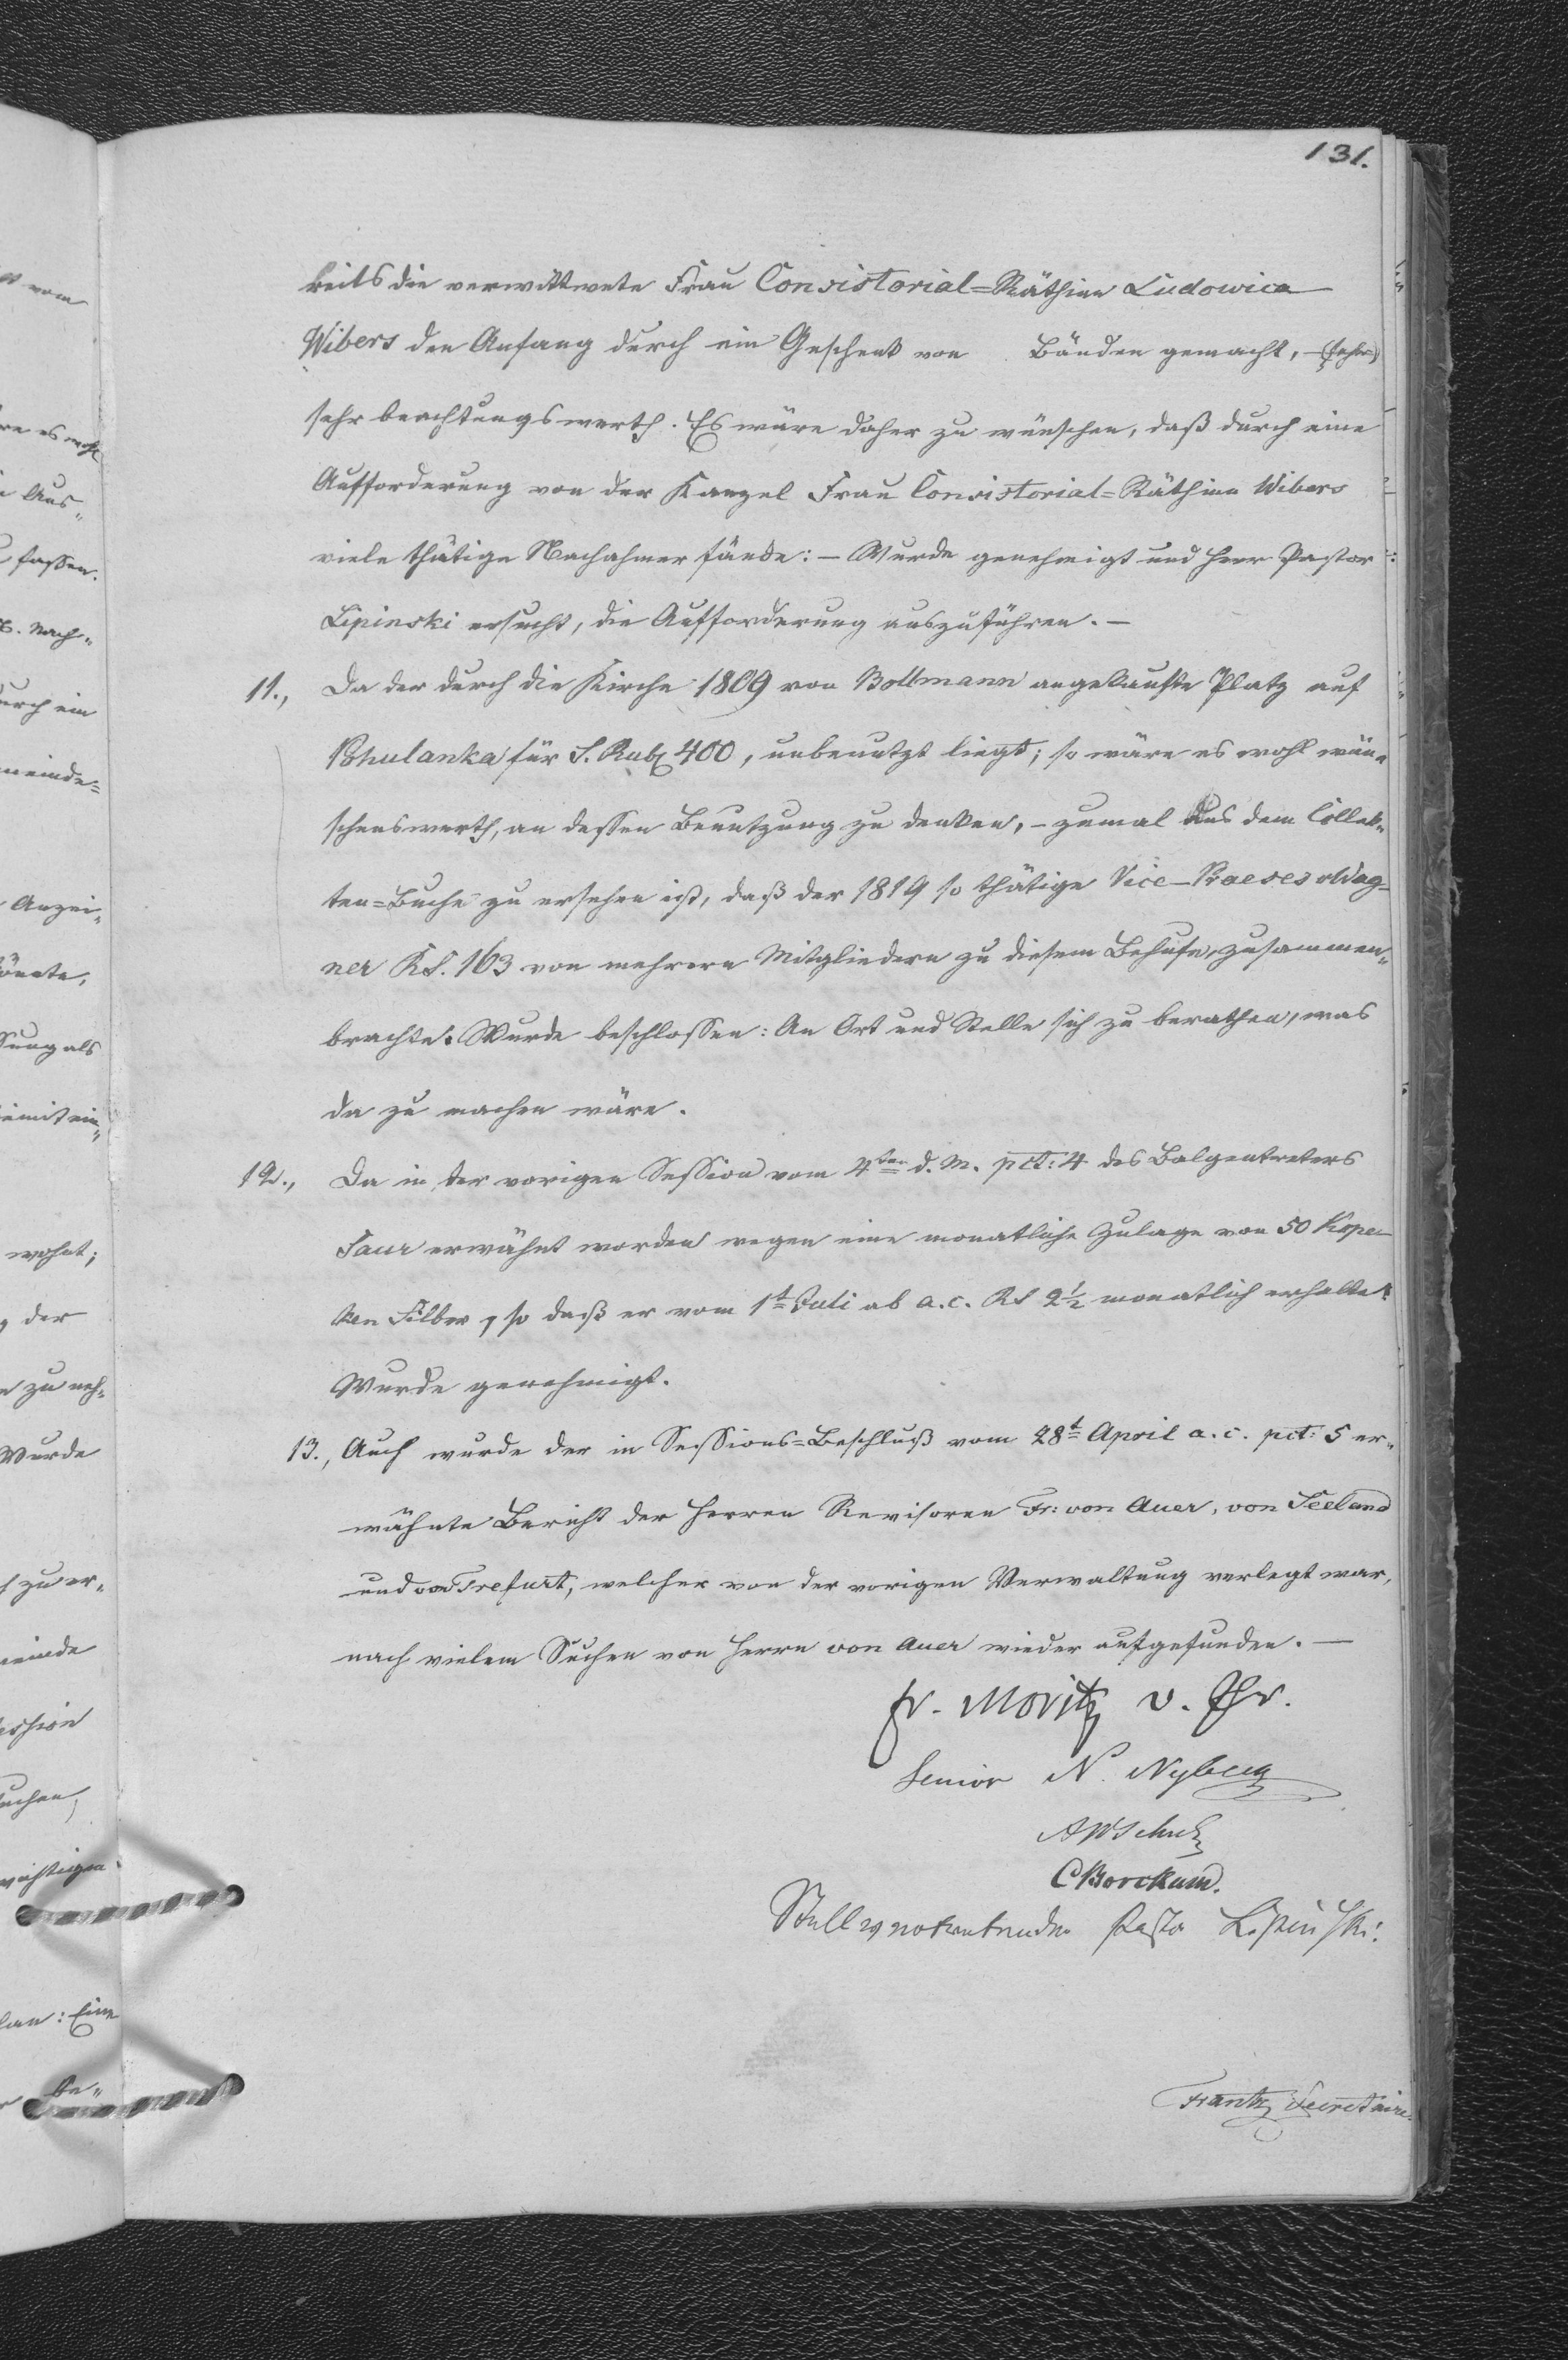 131.
reits die verwittwete Frau Consistorial=Räthinn Ludowica
Wibers den Anfang durch ein Geschenk von Bänden gemacht, – (sehr)
sehr beachtungswerth. Es wäre daher zu wünschen, daß durch eine
Aufforderung von der Kanzel Frau Consistorial=Räthinn Wibers
viele thätige Nachahmer fände: – Wurde genehmigt und Herr Pastor
Lipinski ersucht, die Aufforderung auszuführen. –
11., Da der durch die Kirche 1809 von Bottmann angekaufte Platz auf
Phulanka für S. Rub 400, unbenutzt liegt; so wäre es wohl wün„
schenswerth, an dessen Benutzung zu denken, – zumal aus dem Collek„
ten=Buche zu ersehen ist, daß der 1819 so thätige Vice-Praeses Wag-
ner RS. 163 von mehrern Mitgliedern zu diesem Behufe, zusammen„
brachte. Wurde beschlossen: An Ort und Stelle sich zu berathen, was
da zu machen wäre.
12., Da in der vorigen Session vom 4ten d. M. pct: 4 des Balgentreters
Saur erwähnt worden wegen eine monatliche Zulage von 50 Kope-
ken Silber, so daß er vom 1t Juli ab a. c. RS 2½ monatlich erhalte.
Wurde genehmigt.
13., Auch wurde der in Sessions=Beschluß vom 28t April a. c. pct: 5 er„
wähnte Bericht der Herren Revisoren Fr: von Auer, von Seeland
und von Trefurt, welcher von der vorigen Verwaltung verlegt war,
nach vielem Suchen von Herrn von Auer wieder aufgefunden. –
Fr. Moritz v.
Senior N. Nyberg
AWSchulz
CBorckum.
Pastor Lipinski.
Frantz Secretaire.